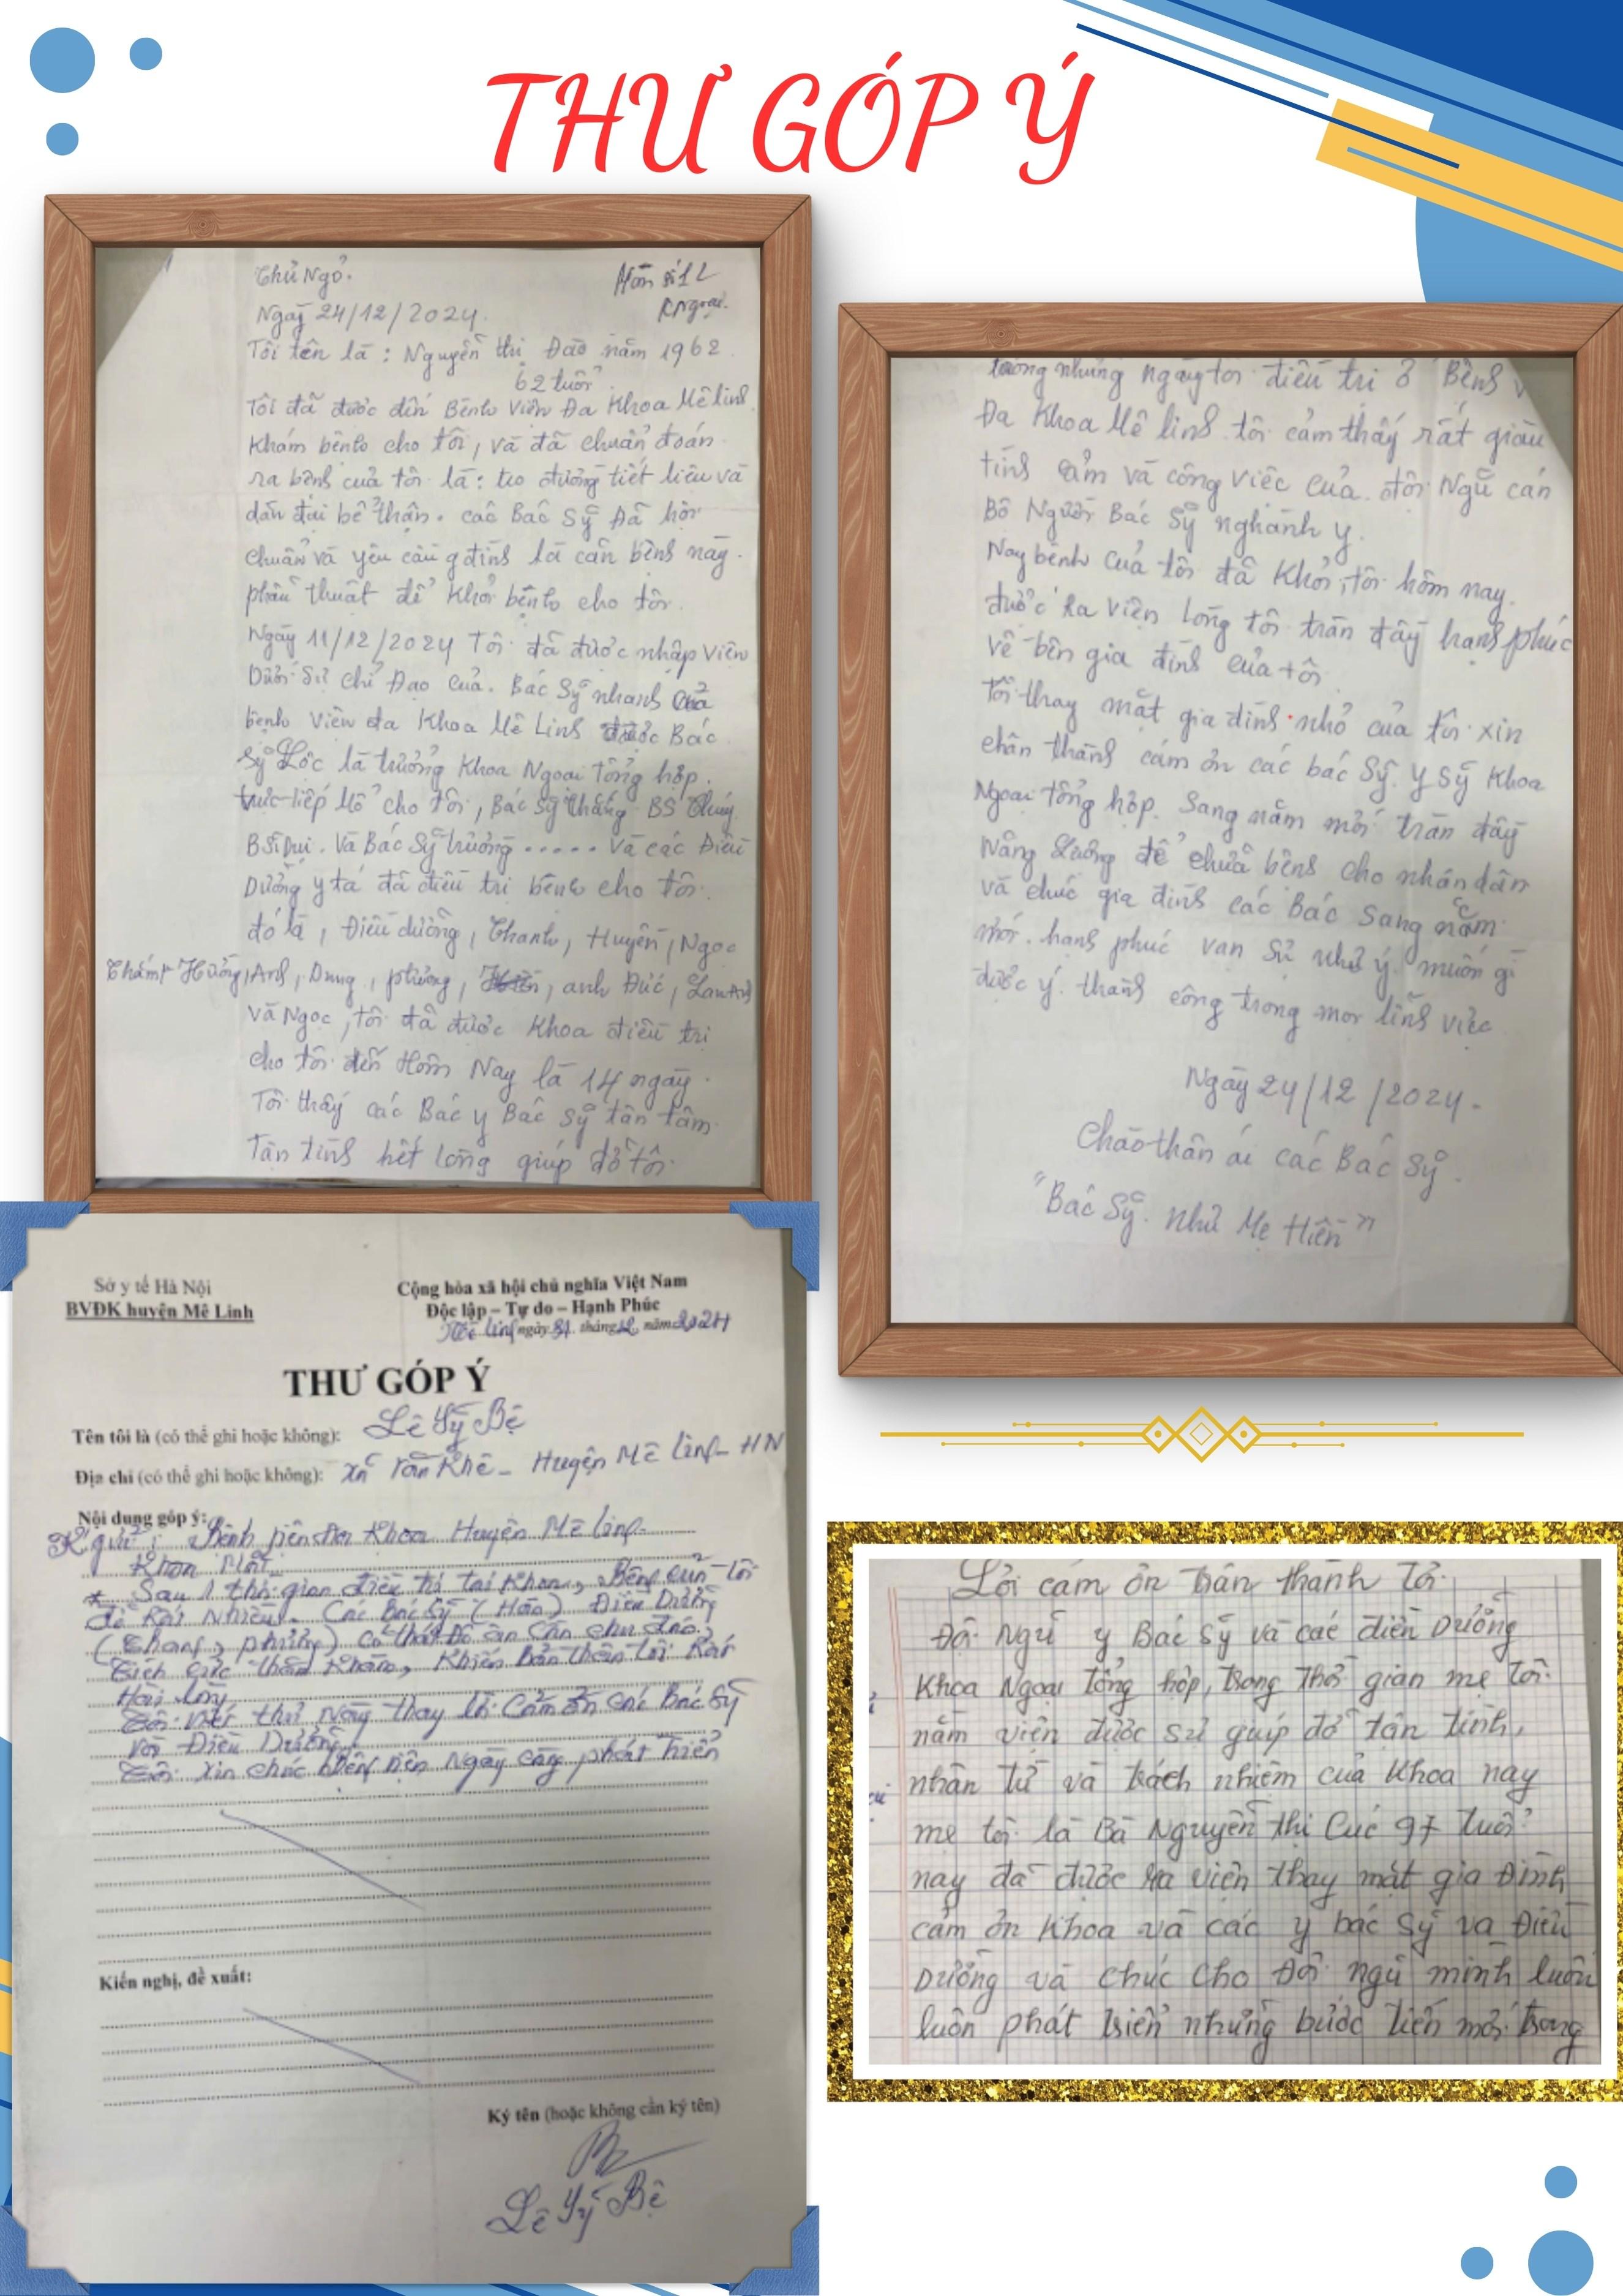 THƯ GÓP Ý
Thủ Ngỏ.
Ngày 24/12/2024.
Tôi tên là : Nguyễn thị Đào năm 1962
62 tuổi
Tôi đã được đến Bệnh Viện Đa Khoa Mê linh
Khám bệnh cho tôi, và đã chuẩn đoán
ra bệnh của tôi là : tiết liệu và
dãn đài bể thận. các Bác Sỹ Đã hội
chuẩn và yêu cầu gđình là căn bệnh này.
phẫu thuật để Khỏi bệnh cho tôi.
Ngày 11/12/2024 Tôi đã được nhập viện
Dưới sự chỉ Đạo của. Bác Sỹ của
bệnh viện đa Khoa Mê Linh được Bác
Sỹ Lộc là trưởng Khoa Ngoại Tổng hợp.
trực tiếp Mổ cho tôi, Bác sỹ thắng BS
BS . Và Bác Sỹ trưởng ..... và các Điều
Dưỡng y tá đã điều trị bệnh cho tôi.
đó là, Điều dưỡng, Thanh, Huyền, Ngọc
Anh, Dung, phượng, anh Đức,
và Ngọc, tôi đã được Khoa điều trị
cho tôi đến Hôm Nay là 14 ngày.
Tôi thấy các Bác y Bác sỹ tận tâm.
Tận tình hết lòng giúp đỡ tôi
trong những ngày tôi điều trị ở Bệnh v
Đa Khoa Mê linh. tôi cảm thấy rất giàu
tình cảm và công việc của. đội Ngũ cán
Bộ Người Bác Sỹ nghành y.
Nay bệnh của tôi đã Khỏi, tôi hôm nay.
được Ra viện lòng tôi tràn đầy hạnh phúc
về bên gia đình của tôi.
Tôi thay mặt gia đình nhỏ của tôi xin
chân thành cám ơn các bác Sỹ. y sỹ Khoa
Ngoại tổng hợp. Sang năm mới tràn đầy
Năng Lượng để chữa bệnh cho nhân dân
và chúc gia đình các Bác Sang năm
mới. hạnh phúc vạn sự như ý muốn gì
được ý. thành công trong mọi lĩnh vực
Ngày 24/12/2024.
Chào thân ái các Bác Sỹ.
"Bác Sỹ. Như Mẹ Hiền"
Sở y tế Hà Nội
BVĐK huyện Mê Linh
Cộng hòa xã hội chủ nghĩa Việt Nam
Độc lập – Tự do – Hạnh Phúc
Mê linh ngày 31 tháng 12 năm 2024
THƯ GÓP Ý
Tên tôi là (có thể ghi hoặc không): Lê Sỹ Bệ
Địa chỉ (có thể ghi hoặc không): Khê - Huyện Mê linh - HN
Nội dung góp ý:
K/gửi: Bệnh viện Đa Khoa Huyện Mê linh
Khoa
* Sau 1 thời gian điều trị tại Khoa, Bệnh của tôi
đỡ Rất Nhiều. Các Bác Sỹ Điều Dưỡng
phượng) có thái độ ân cần chu đáo.
Tích cực thăm Khám, Khiến bản thân tôi Rất
Hài lòng
Tôi viết thư này thay lời cảm ơn các Bác Sỹ
và Điều Dưỡng.
Tôi xin chúc bệnh viện Ngày càng phát triển
Kiến nghị, đề xuất:
Ký tên (hoặc không cần ký tên)
Lê Sỹ Bệ
Lời cám ơn trân thành tới
Đội Ngũ y Bác Sỹ và các điều Dưỡng
Khoa Ngoại tổng hợp, trong thời gian mẹ tôi
nằm viện được sự giúp đỡ tân tình,
nhân từ và trách nhiệm của Khoa nay
mẹ tôi là Bà Nguyễn thị Cúc 97 tuổi
nay đã được ra viện thay mặt gia đình
cảm ơn Khoa và các y bác sỹ và Điều
Dưỡng và chúc cho Đội ngũ mình luôn
luôn phát triển những bước tiến mới trong